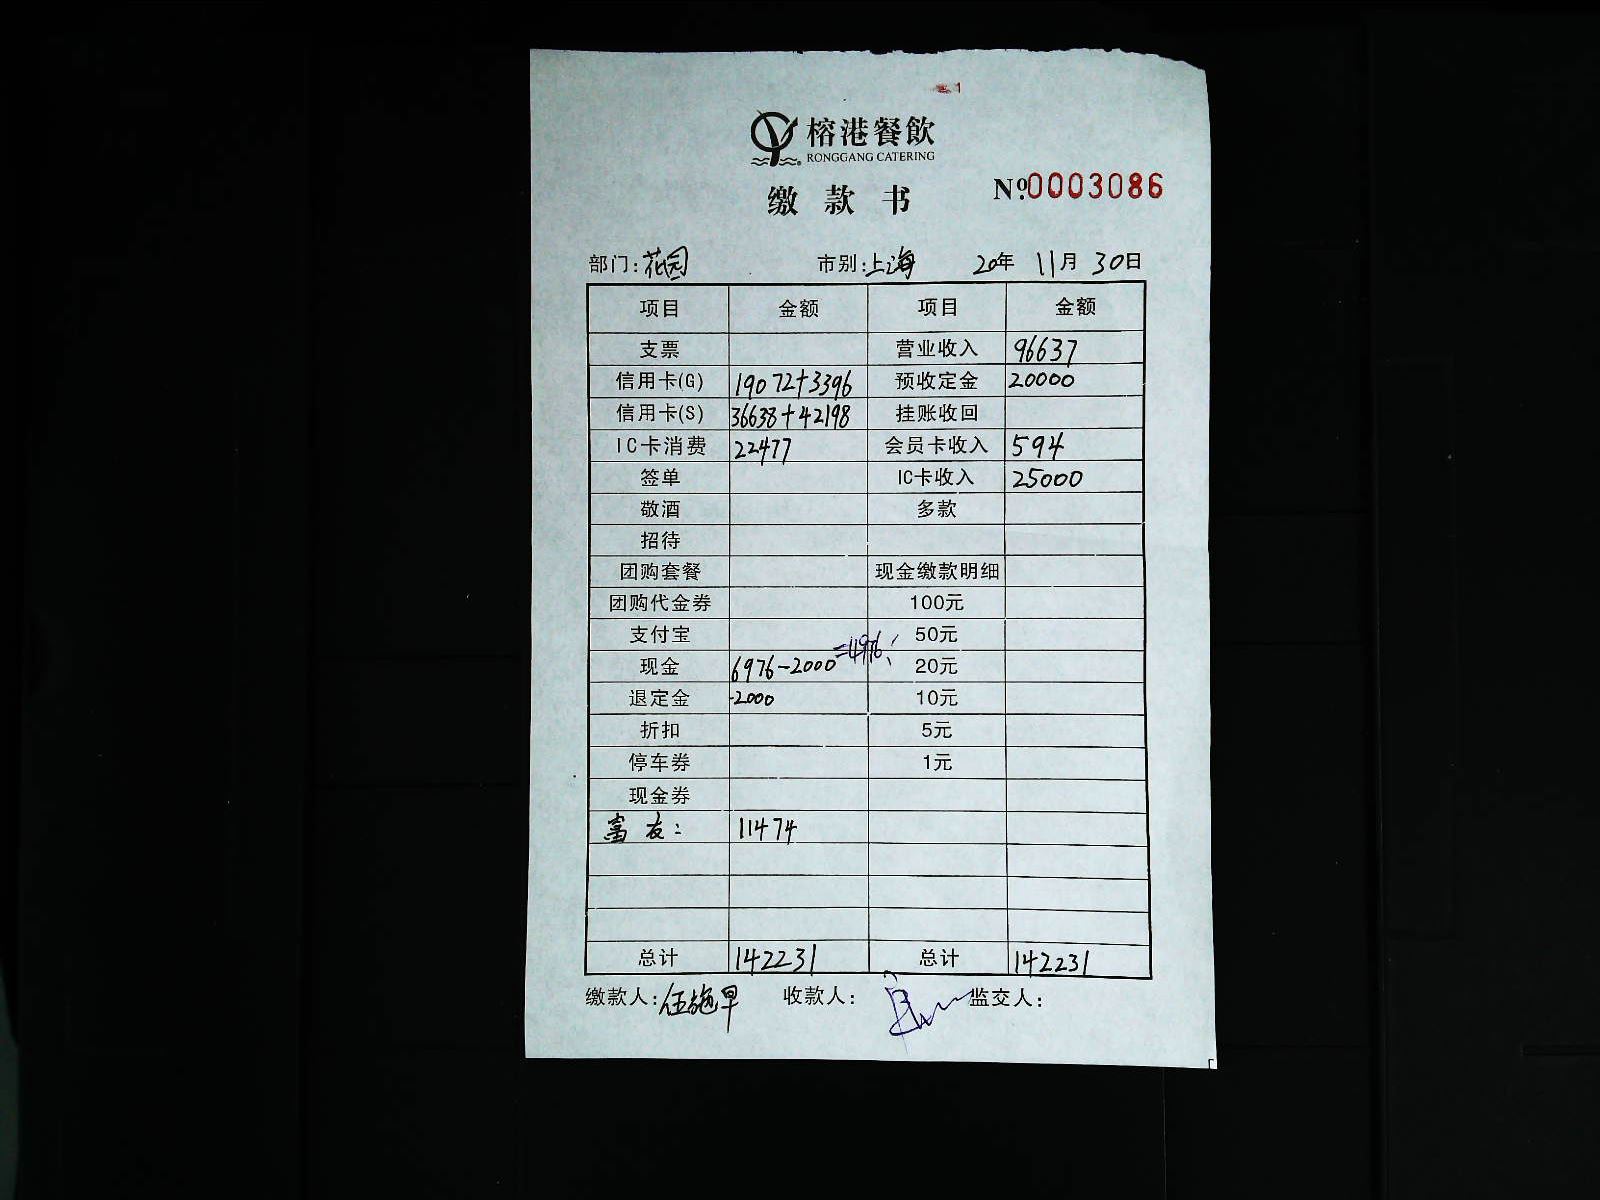 榕港餐飲
RONGGANG CATERING
缴款书
№0003086
部门:花园 市别:上海 20年 11月 30日
项目 金额 项目 金额
支票 营业收入 96637
信用卡(G) 19072+3396 预收定金 20000
信用卡(S) 36638+42198 挂账收回
IC卡消费 22477 会员卡收入 594
签单 IC卡收入 25000
敬酒 多款
招待
团购套餐 现金缴款明细
团购代金券 100元
支付宝 50元
现金 6976-2000=4976 20元
退定金 -2000 10元
折扣 5元
停车券 1元
现金券
富友: 11474
总计 142231 总计 142231
缴款人:伍施早 收款人: 监交人: